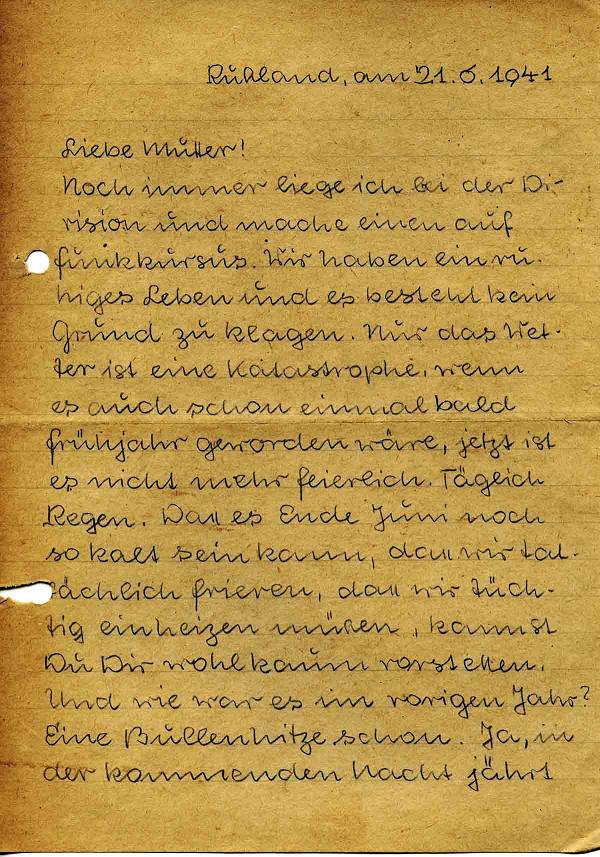 Rußland, am 21.6.1941
Liebe Mutter!
Noch immer liege ich bei der Di-
vision und mache einen auf
funkkursus. Wir haben ein ru-
higes Leben und es besteht kein
Grund zu klagen. Nur das Wet-
ter ist eine Katastrophe, wenn
es auch schon einmal bald
frühjahr geworden wäre, jetzt ist
es nicht mehr feierlich. Täglich
Regen. Dass es Ende Juni noch
so kalt sein kann, dass wir tat-
sächlich frieren, dass wir tüch-
tig einheizen müßen, kannst
Du Dir wohl kaum vorstellen.
Und wie war es im vorigen Jahr?
Eine Bullenhitze schon. Ja, in
der kommenden Nacht jährt